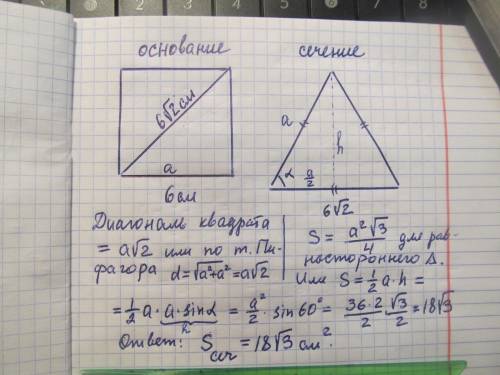 основание
сечение
6√2 см
a
6 см
a
h
α
a/2
6√2
Диагональ квадрата
= a√2 или по т. Пи-
фагора d=√a²+a² = a√2
S = a²√3/4 для рав-
ностороннего Δ.
Или S = 1/2 a·h =
= 1/2 a · a·sinα = a²/2 · sin 60° = 36·2/2 · √3/2 = 18√3
h
Ответ: Sсеч = 18√3 см².